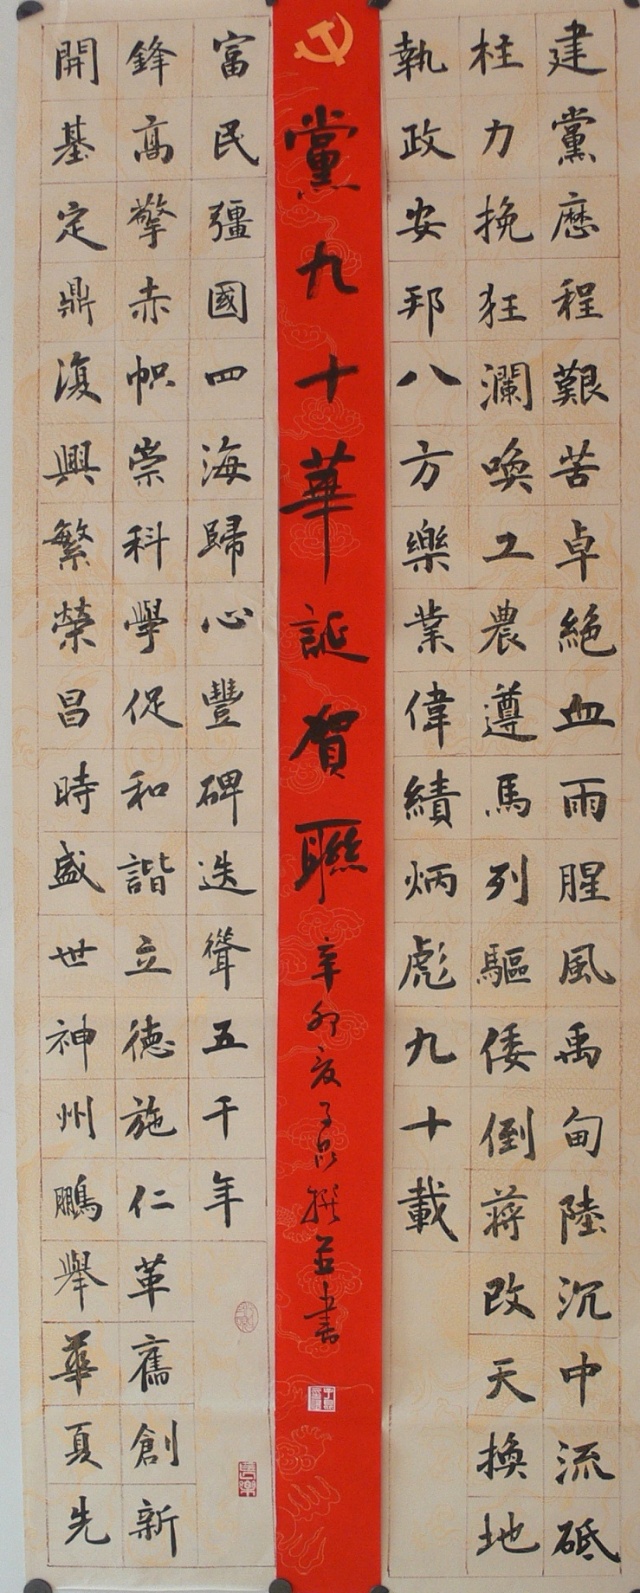 建黨歷程艱苦卓絕血雨腥風禹甸陸沉中流砥
柱力挽狂瀾喚工農遵馬列驅倭倒蔣改天換地
執政安邦八方樂業偉績炳彪九十載
黨九十華誕賀聯
辛卯夏子撰并書
開基定鼎復興繁榮昌時盛世神州鵬舉華夏先
鋒高擎赤幟崇科學促和諧立德施仁革舊創新
富民彊國四海歸心豐碑迭聳五千年